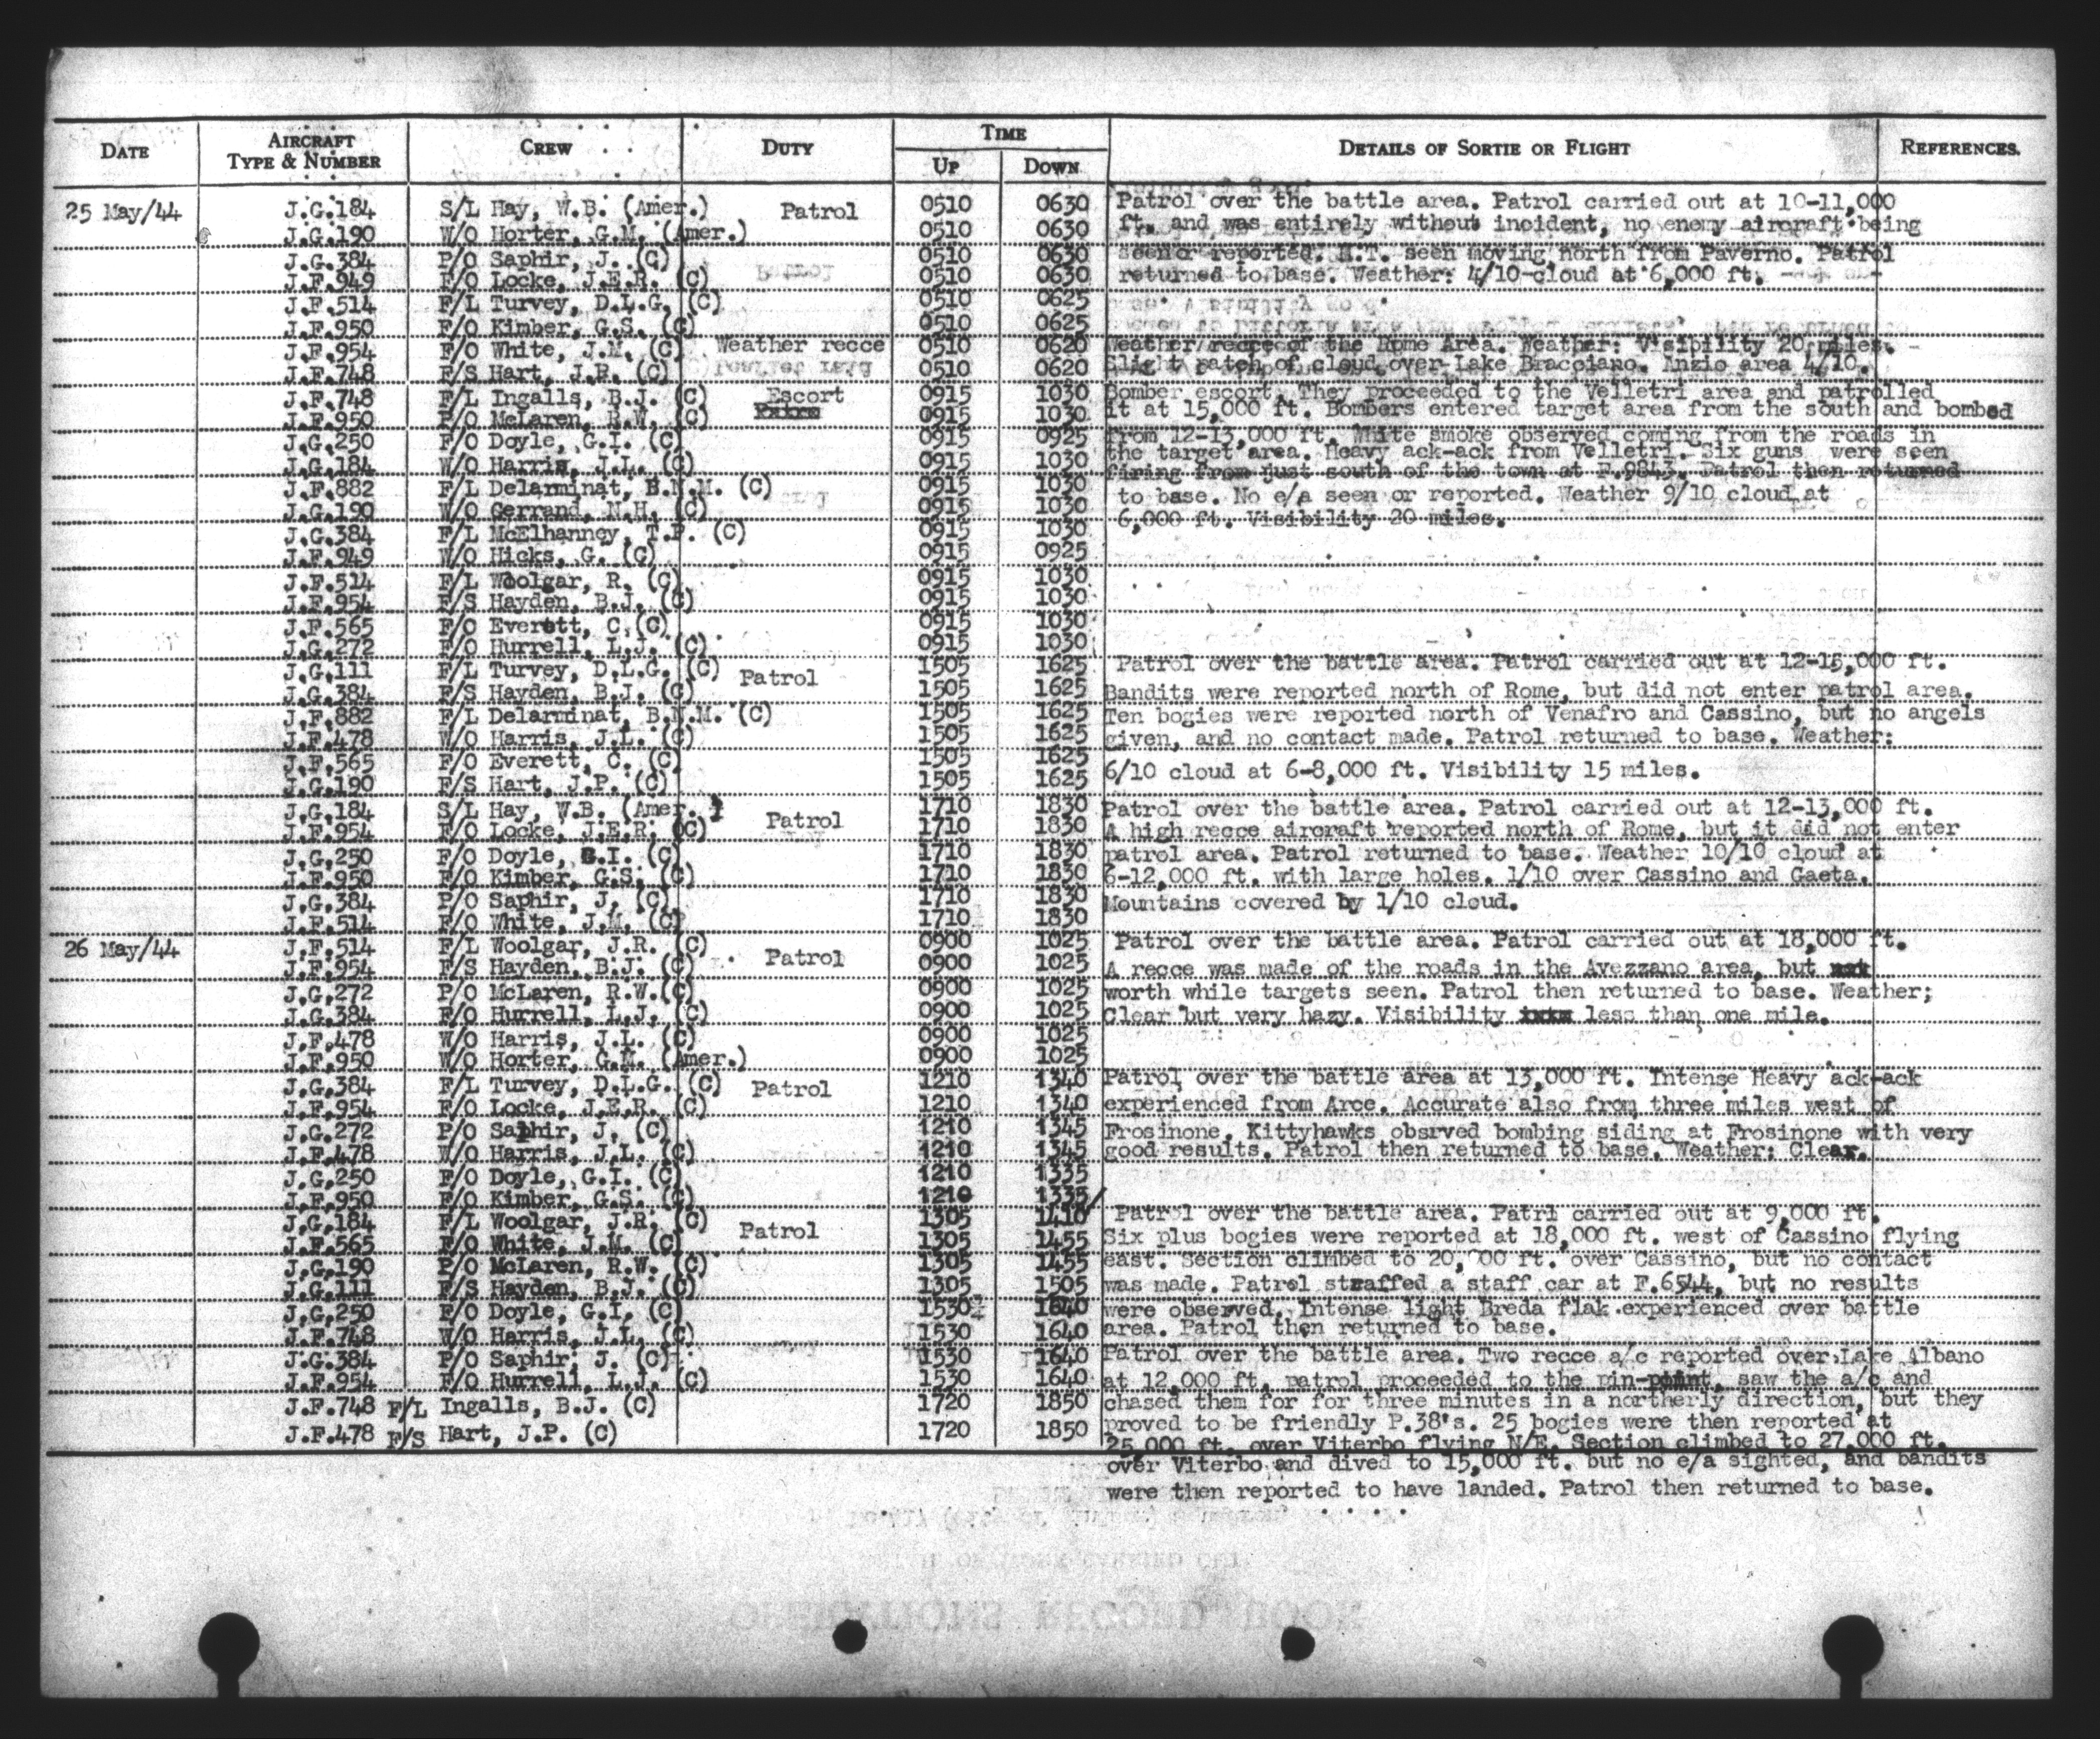 DATE AIRCRAFT TYPE & NUMBER CREW DUTY TIME UP DOWN DETAILS OF SORTIE OR FLIGHT REFERENCES.
25 May/44 J.G.184 S/L Hay, W.B. (Amer.) Patrol 0510 0630 Patrol over the battle area. Patrol carried out at 10-11,000
J.G.190 W/O Horter, G.M. (Amer.) 0510 0630 ft. and was entirely without incident, no enemy aircraft being
J.G.384 P/O Saphir, J. (C) 0510 0630 seen or reported. M.T. seen moving north from Paverno. Patrol
J.F.949 F/O Locke, J.E.R. (C) 0510 0630 returned to base. Weather: 4/10 cloud at 6,000 ft.
J.F.514 F/L Turvey, D.L.G. (C) 0510 0625
J.F.950 F/O Kimber, G.S. (C) 0510 0625
J.F.954 F/O White, J.M. (C) Weather recce 0510 0620 Weather recce of the Rome Area. Weather: Visibility 20 miles.
J.F.748 F/S Hart, J.P. (C) 0510 0620 Slight patch of cloud over Lake Bracciano. Anzio area 4/10.
J.F.748 F/L Ingalls, B.J. (C) Escort 0915 1030 Bomber escort. They proceeded to the Velletri area and patrolled
J.F.950 P/O McLaren, R.W. (C) 0915 1030 it at 15,000 ft. Bombers entered target area from the south and bombed
J.G.250 F/O Doyle, G.I. (C) 0915 0925 from 12-13,000 ft. White smoke observed coming from the roads in
J.G.184 W/O Harris, J.L. (C) 0915 1030 the target area. Heavy ack-ack from Velletri. Six guns were seen
firing from just south of the town at F.9843. Patrol then returned
J.F.882 F/L Delarminat, B.N.M. (C) 0915 1030 to base. No e/a seen or reported. Weather 9/10 cloud at
J.G.190 W/O Gerrand, N.H. (C) 0915 1030 6,000 ft. Visibility 20 miles.
J.G.384 F/L McElhanney, T.P. (C) 0915 1030
J.F.949 W/O Hicks, G. (C) 0915 0925
J.F.514 F/L Woolgar, R. (C) 0915 1030
J.F.954 F/S Hayden, B.J. (C) 0915 1030
J.F.565 F/O Everett, C. (C) 0915 1030
J.G.272 F/O Hurrell, L.J. (C) 0915 1030
J.G.111 F/L Turvey, D.L.G. (C) Patrol 1505 1625 Patrol over the battle area. Patrol carried out at 12-15,000 ft.
J.G.384 F/S Hayden, B.J. (C) 1505 1625 Bandits were reported north of Rome, but did not enter patrol area.
J.F.882 F/L Delarminat, B.N.M. (C) 1505 1625 Ten bogies were reported north of Venafro and Cassino, but no angels
J.F.478 W/O Harris, J.L. (C) 1505 1625 given, and no contact made. Patrol returned to base. Weather:
J.F.565 F/O Everett, C. (C) 1505 1625 6/10 cloud at 6-8,000 ft. Visibility 15 miles.
J.G.190 F/S Hart, J.P. (C) 1505 1625
J.G.184 S/L Hay, W.B. (Amer.) Patrol 1710 1830 Patrol over the battle area. Patrol carried out at 12-13,000 ft.
J.F.954 F/O Locke, J.E.R. (C) 1710 1830 A high recce aircraft reported north of Rome, but it did not enter
J.G.250 F/O Doyle, G.I. (C) 1710 1830 patrol area. Patrol returned to base. Weather 10/10 cloud at
J.F.950 F/O Kimber, G.S. (C) 1710 1830 6-12,000 ft. with large holes. 1/10 over Cassino and Gaeta.
J.G.384 P/O Saphir, J. (C) 1710 1830 Mountains covered by 1/10 cloud.
J.F.514 F/O White, J.M. (C) 1710 1830
26 May/44 J.F.514 F/L Woolgar, J.R. (C) Patrol 0900 1025 Patrol over the battle area. Patrol carried out at 18,000 ft.
J.F.954 F/S Hayden, B.J. (C) 0900 1025 A recce was made of the roads in the Avezzano area, but
J.G.272 P/O McLaren, R.W. (C) 0900 1025 worth while targets seen. Patrol then returned to base. Weather;
J.G.384 F/O Hurrell, L.J. (C) 0900 1025 Clear but very hazy. Visibility less than one mile.
J.F.478 W/O Harris, J.L. (C) 0900 1025
J.F.950 W/O Horter, G.M. (Amer.) 0900 1025
J.G.384 F/L Turvey, D.L.G. (C) Patrol 1210 1340 Patrol over the battle area at 13,000 ft. Intense Heavy ack-ack
J.F.954 F/O Locke, J.E.R. (C) 1210 1340 experienced from Arce. Accurate also from three miles west of
J.G.272 P/O Saphir, J. (C) 1210 1345 Frosinone. Kittyhawks obsrved bombing siding at Frosinone with very
J.F.478 W/O Harris, J.L. (C) 1210 1345 good results. Patrol then returned to base. Weather: Clear.
J.G.250 F/O Doyle, G.I. (C) 1210 1335
J.F.950 F/O Kimber, G.S. (C) 1210 1335
J.G.184 F/L Woolgar, J.R. (C) Patrol 1305 1410 Patrol over the battle area. Patrl carried out at 9,000 ft.
J.F.565 F/O White, J.M. (C) 1305 1455 Six plus bogies were reported at 18,000 ft. west of Cassino flying
J.G.190 P/O McLaren, R.W. (C) 1305 1455 east. Section climbed to 20, 00 ft. over Cassino, but no contact
J.G.111 F/S Hayden, B.J. (C) 1305 1505 was made. Patrol straffed a staff car at F.6544, but no results
J.G.250 F/O Doyle, G.I. (C) 1530 1640 were observed. Intense light Breda flak experienced over battle
J.F.748 W/O Harris, J.L. (C) 1530 1640 area. Patrol then returned to base.
J.G.384 P/O Saphir, J. (C) 1530 1640 Patrol over the battle area. Two recce a/c reported over Lake Albano
J.F.954 F/O Hurrell, L.J. (C) 1530 1640 at 12,000 ft. patrol proceeded to the pin-point, saw the a/c and
J.F.748 F/L Ingalls, B.J. (C) 1720 1850 chased them for for three minutes in a northerly direction, but they
J.F.478 F/S Hart, J.P. (C) 1720 1850 proved to be friendly P.38's. 25 bogies were then reported at
25,000 ft. over Viterbo flying N/E. Section climbed to 27,000 ft.
over Viterbo and dived to 15,000 ft. but no e/a sighted, and bandits
were then reported to have landed. Patrol then returned to base.